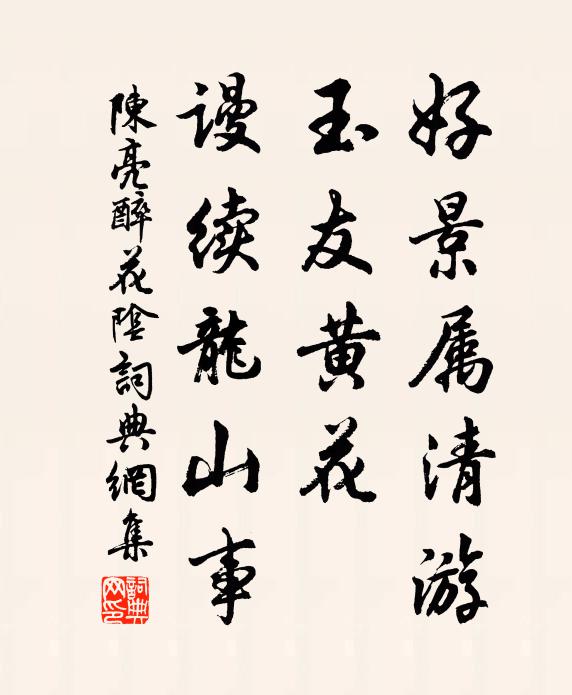 好景属清游
玉友黄花
谩续龍山事
陳亮醉花陰詞典網集
詞典网印